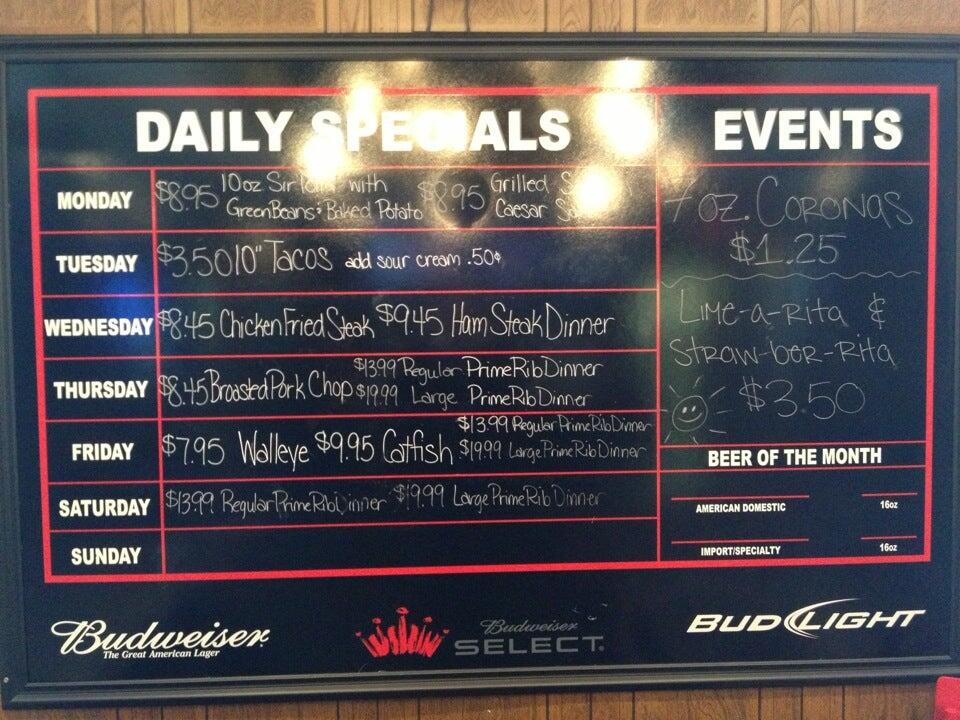 DAILY SPECIALS
MONDAY
$8.95 10oz Sirloin with
Green Beans & Baked Potato
$8.95 Grilled
Caesar
TUESDAY
$3.50 10" Tacos add sour cream .50¢
WEDNESDAY
$8.45 Chicken Fried Steak $9.45 Ham Steak Dinner
THURSDAY
$8.45 Broasted Pork Chop
$13.99 Regular Prime Rib Dinner
$19.99 Large Prime Rib Dinner
FRIDAY
$7.95 Walleye $9.95 Catfish
$13.99 Regular Prime Rib Dinner
$19.99 Large Prime Rib Dinner
SATURDAY
$13.99 Regular Prime Rib Dinner $19.99 Large Prime Rib Dinner
SUNDAY
EVENTS
7 oz. Coronas
$1.25
Lime-a-Rita &
Straw-ber-Rita
$3.50
BEER OF THE MONTH
AMERICAN DOMESTIC 16oz
IMPORT/SPECIALTY 16oz
Budweiser
The Great American Lager
Budweiser
SELECT.
BUD LIGHT